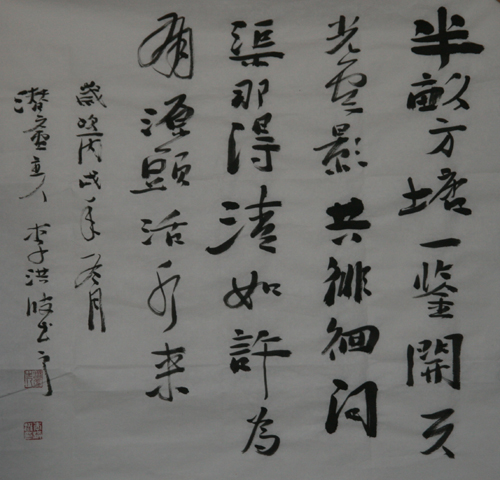 半畝方塘一鉴開天
光雲影共徘徊问
渠那得清如許為
有源頭活水来
歲次丙戌年冬月
主人李洪波书于